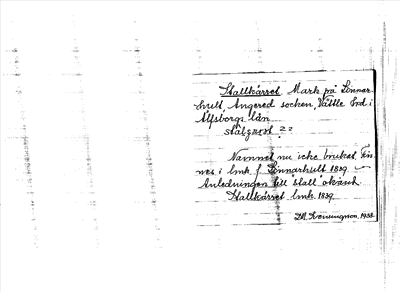 Stallkärret Mark på Linnar-
hult, Angered socken, Vättle hd i
Älfsborgs län.
Namnet nu icke brukat. Fin-
nes i lmk f Linnarhult 1839
Anledningen till "stall" okänd.
Stallkärret lmk. 1839
1933.